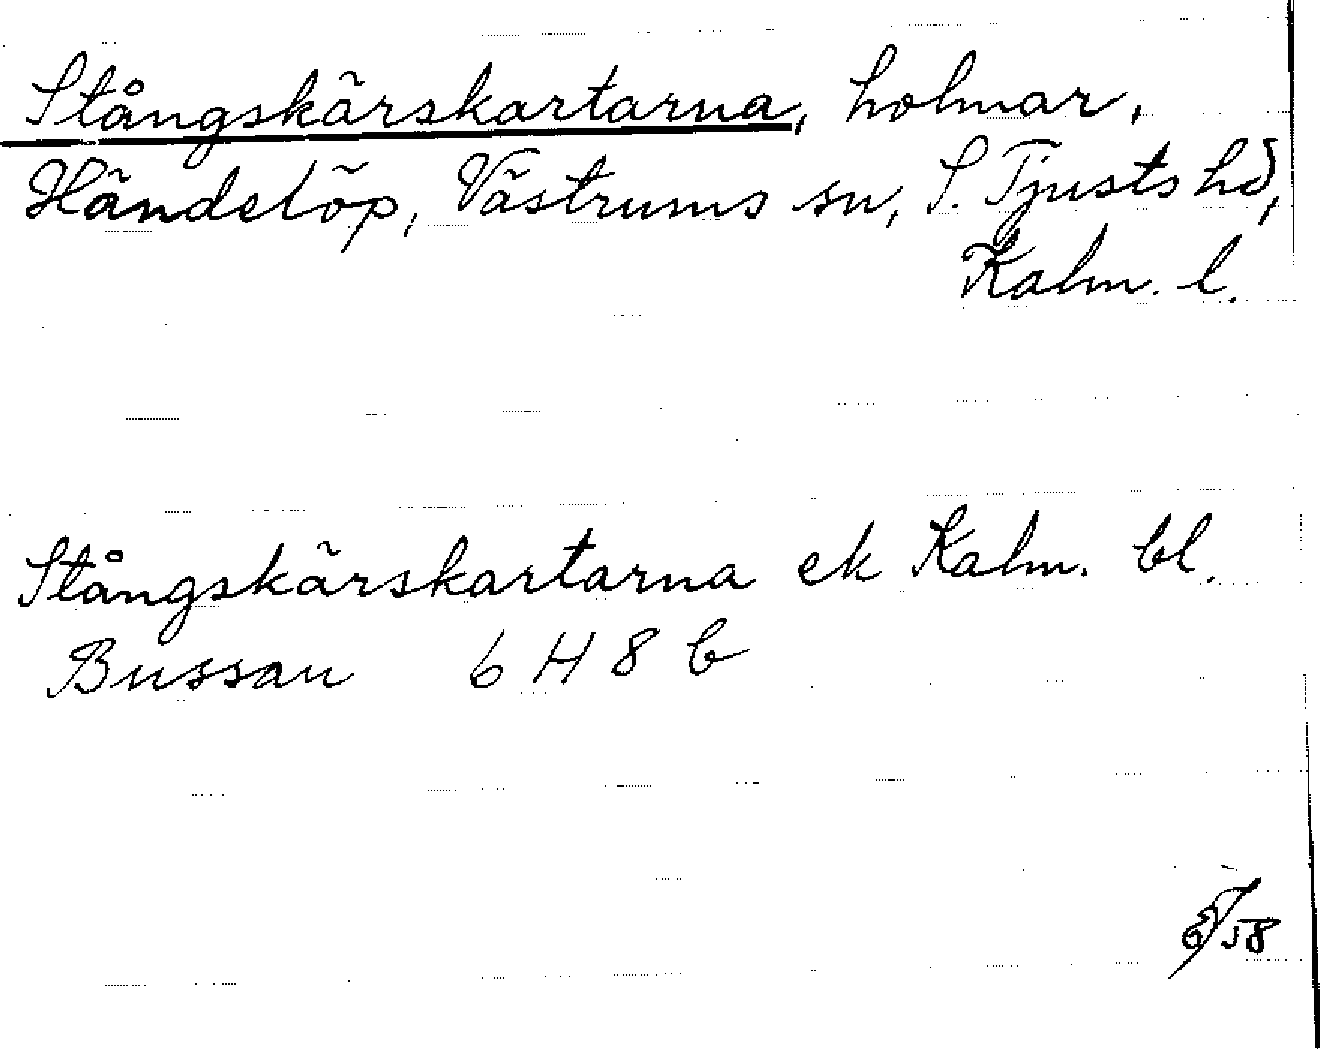 Stångskärskartarna, holmar,
Händelöp, Västrums sn, S. Tjusts hd,
Kalm. l.
Stångskärskartarna ek Kalm. bl.
Bussan 6 H 8 b